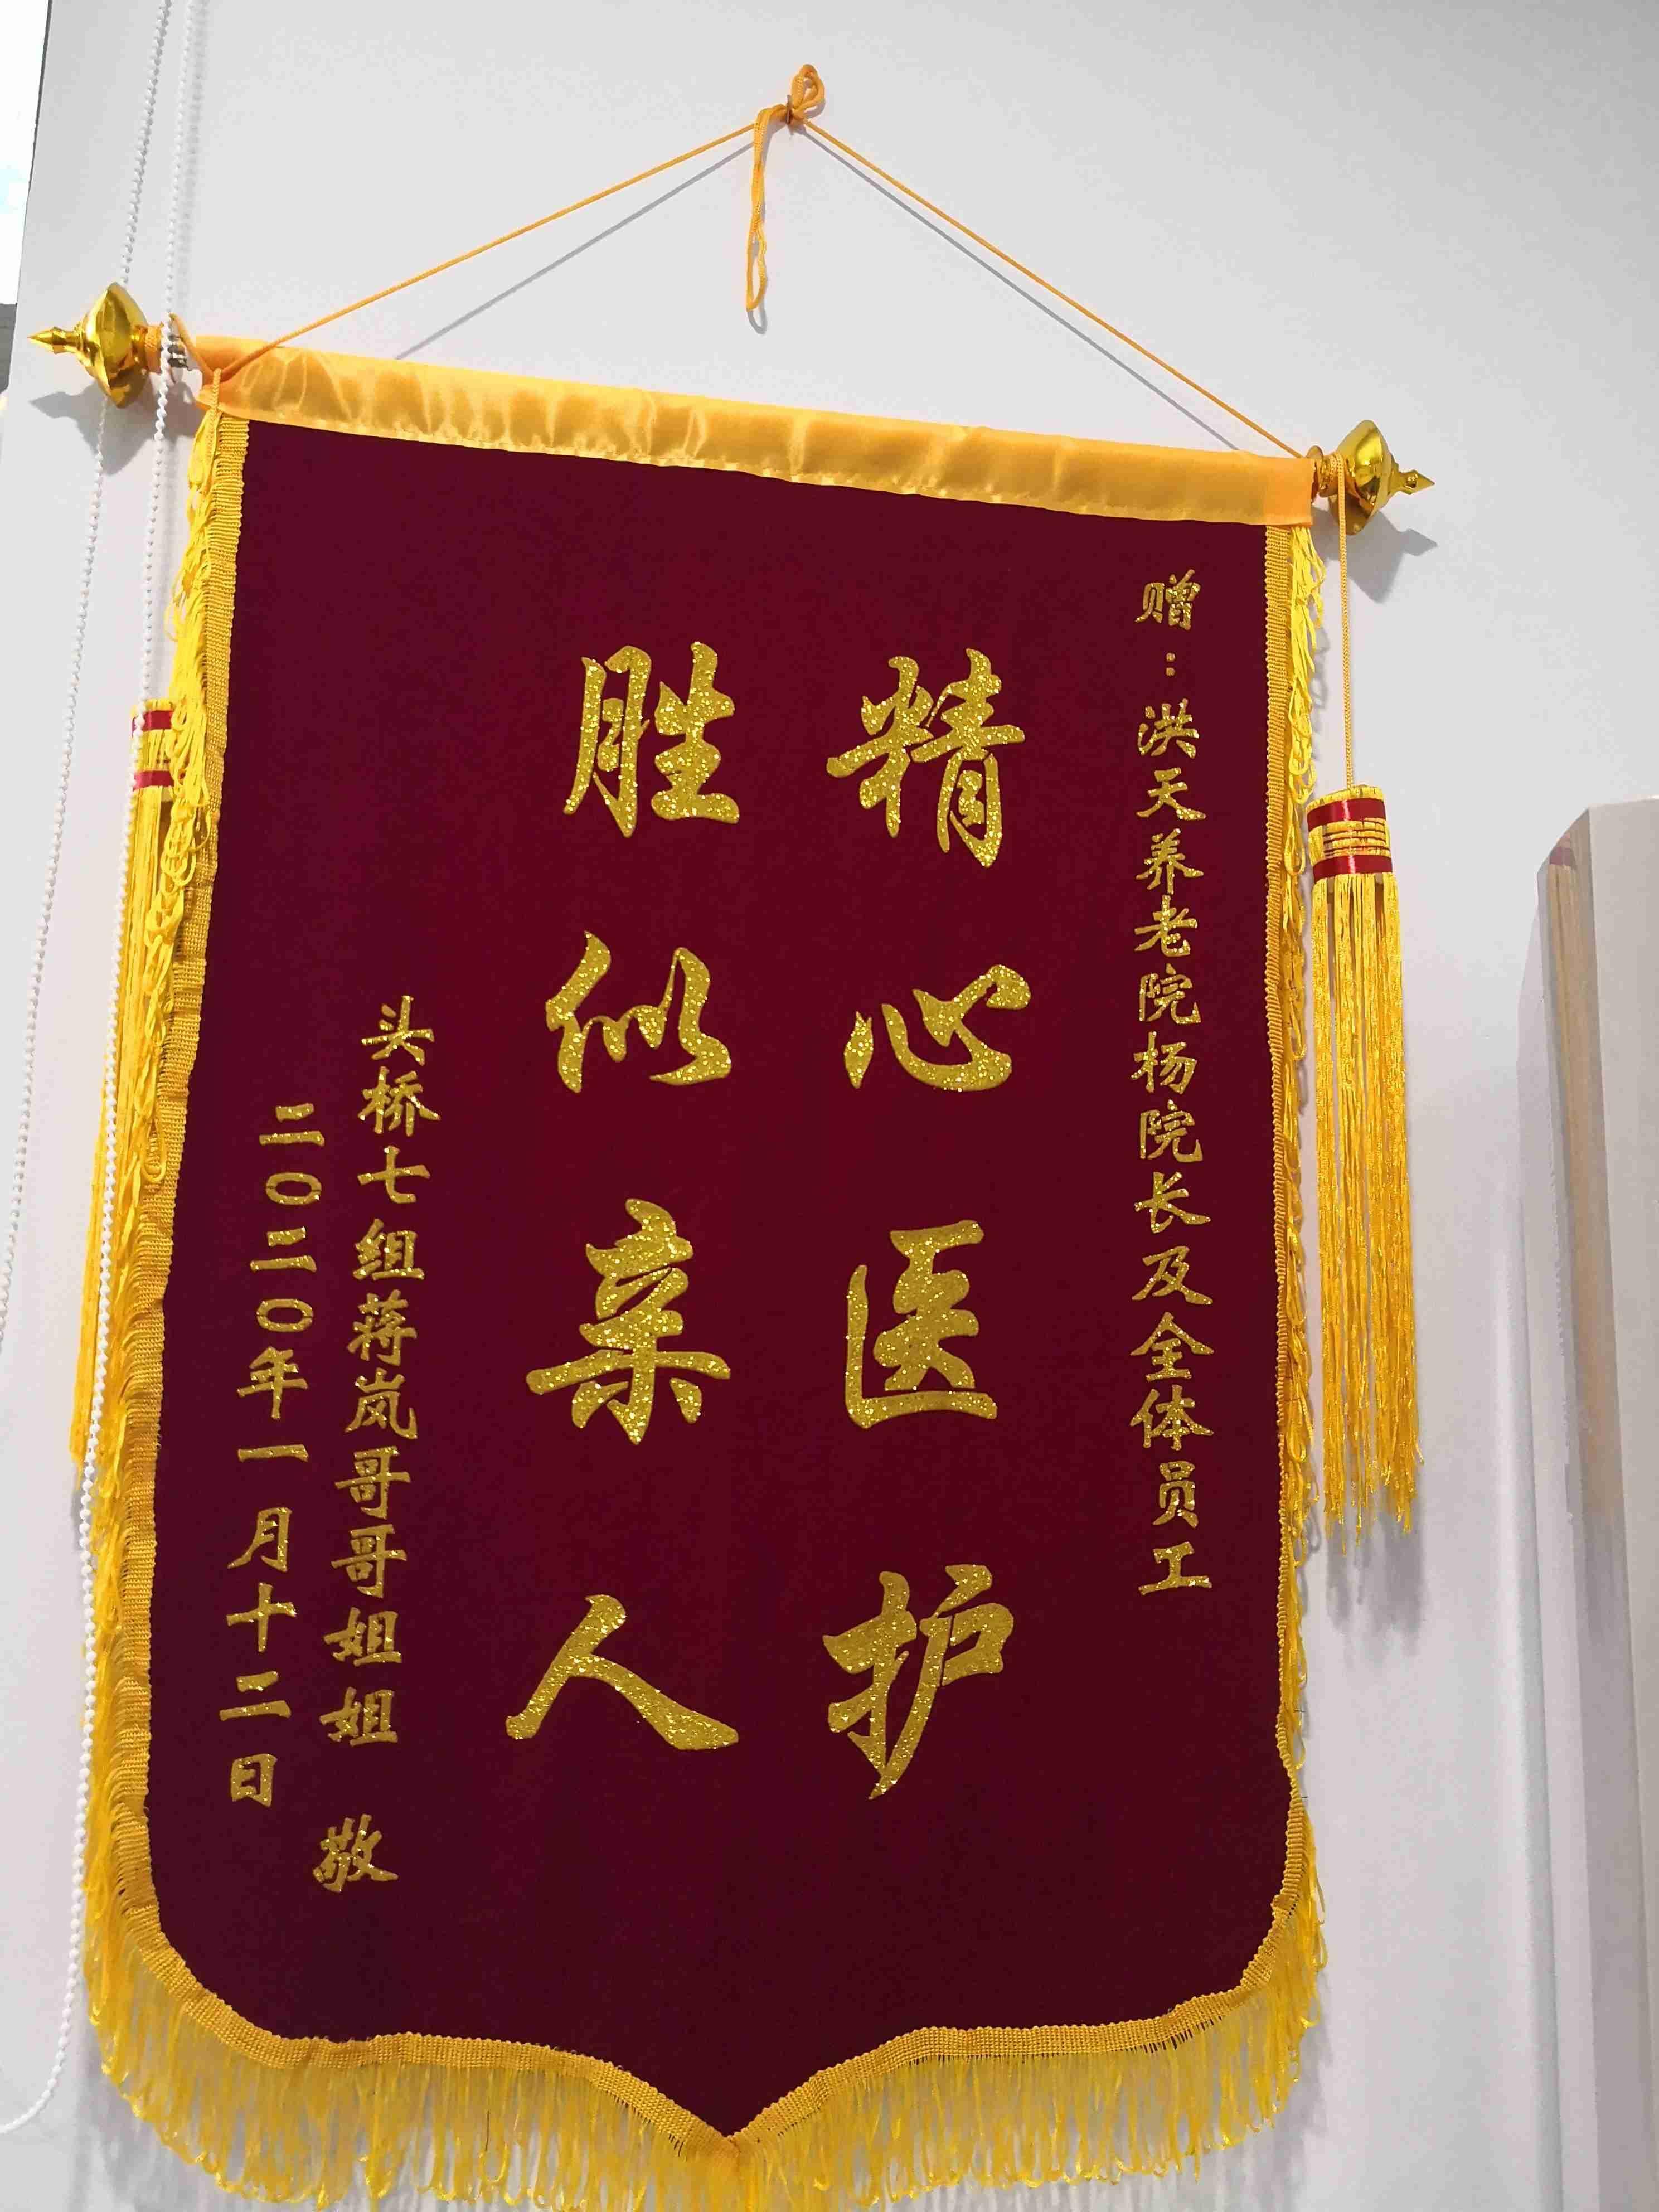 赠：洪天养老院杨院长及全体员工
精心医护
胜似亲人
头桥七组蒋岚哥哥姐姐 敬
二〇二〇年一月十二日